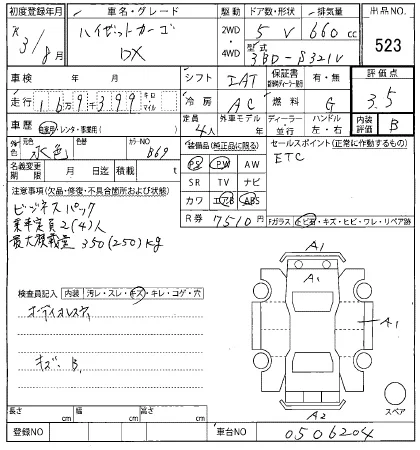 初度登録年月 車名・グレード 駆動 ドア数・形状 排気量 出品NO.
R 3/8月 ハイゼットカーゴ DX 2WD 4WD 5 V 660 cc 523
型式 3BD-S321V
車検 年 月 シフト IAT 保証書 有・無 評価点 3.5
走行 16万9千399 キロ マイル 冷房 AC 燃料 G
車歴 自家用・レンタ・事業用( ) 定員 4人 外車モデル 年 ディーラー・並行 ハンドル 左・右 内装評価 B
元色 水色 色替 カラーNO B69
装備品(純正品に限る) セールスポイント(正常に作動するもの)
名義変更期限 月 日 積載 t
PS PW AW ETC
SR TV ナビ
カワ エアB ABS
R券 7510円
注意事項(欠品・修復・不具合箇所および状態)
ビジネスパック
乗車定員2(4)人
最大積載量 350(250)kg
Fガラス 飛石・キズ・ヒビ・ワレ・リペア跡
検査員記入 内装 汚レ・スレ・キズ・キレ・コゲ・穴
オーディオレス
キズ B1
A1
A1
A1
A2
スペア
長さ cm 幅 cm 高さ cm
登録NO 車台NO 0506204